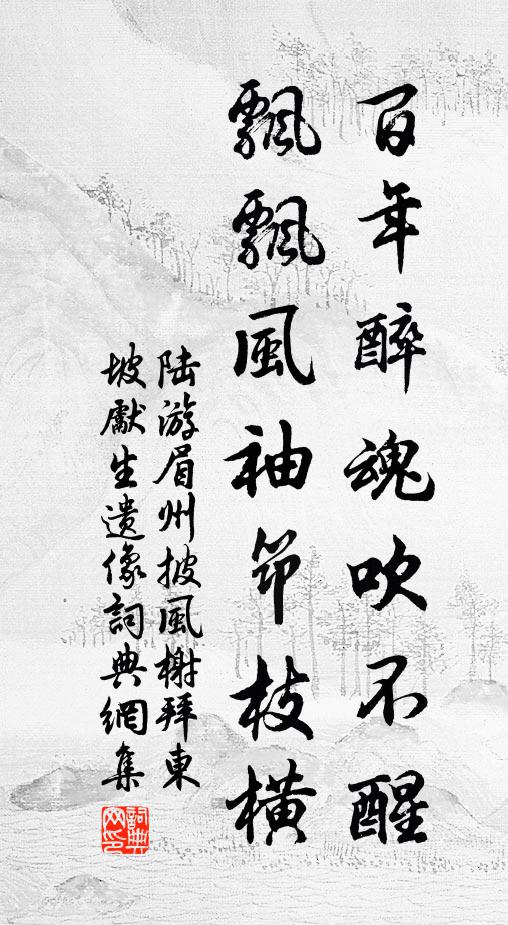 百年醉魂吹不醒
飄飄風袖笻枝橫
陆游眉州披風榭拜東
坡獻生遺像詞典網集
詞典网印